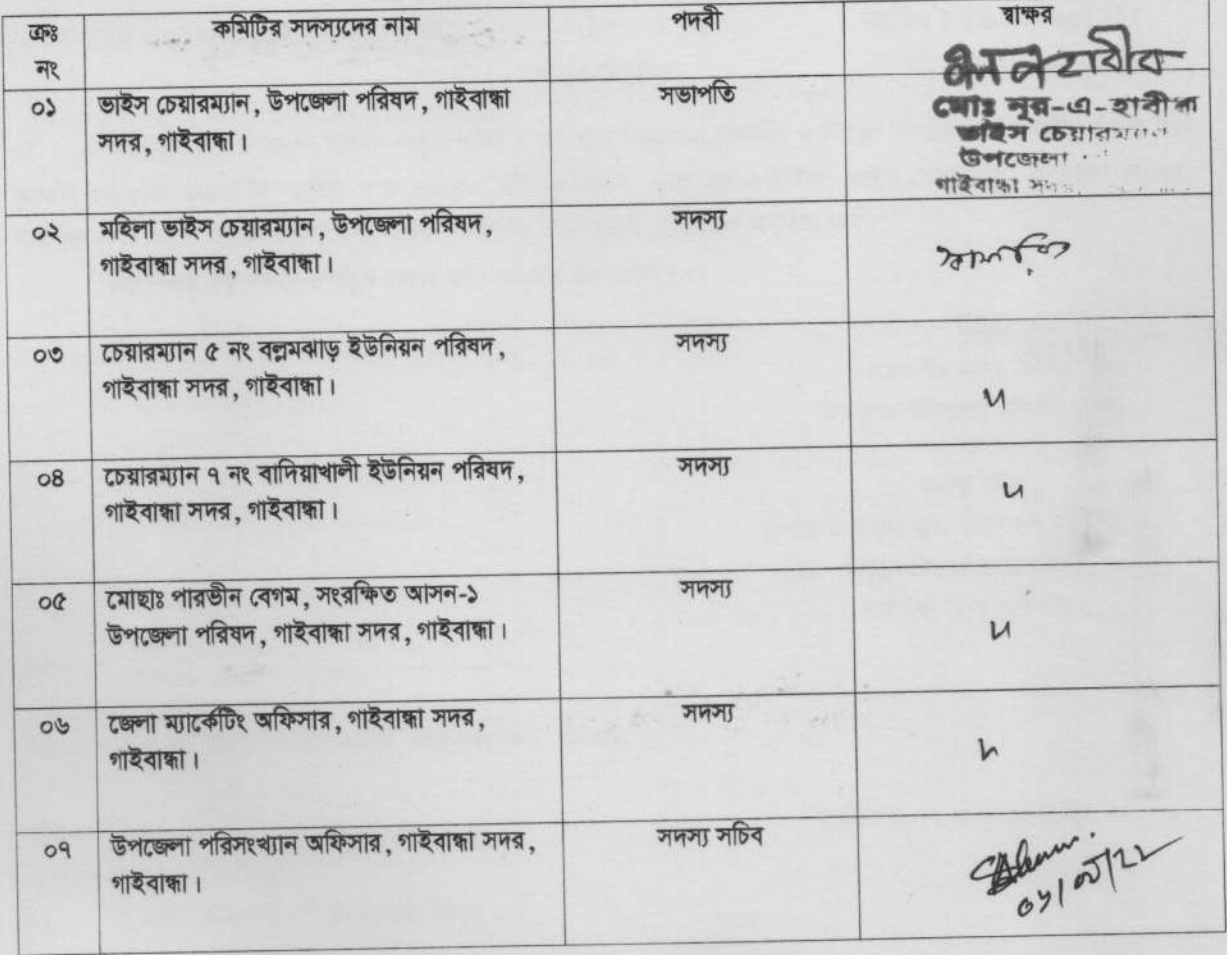 ক্রঃ নং কমিটির সদস্যদের নাম পদবী স্বাক্ষর
০১ ভাইস চেয়ারম্যান, উপজেলা পরিষদ, গাইবান্ধা সভাপতি
সদর, গাইবান্ধা।
মোঃ নূর-এ-হাবীব
ভাইস চেয়ারম্যান
উপজেলা
গাইবান্ধা সদর
০২ মহিলা ভাইস চেয়ারম্যান, উপজেলা পরিষদ, সদস্য
গাইবান্ধা সদর, গাইবান্ধা।
০৩ চেয়ারম্যান ৫ নং বল্লমঝাড় ইউনিয়ন পরিষদ, সদস্য
গাইবান্ধা সদর, গাইবান্ধা।
০৪ চেয়ারম্যান ৭ নং বাদিয়াখালী ইউনিয়ন পরিষদ, সদস্য
গাইবান্ধা সদর, গাইবান্ধা।
০৫ মোছাঃ পারভীন বেগম, সংরক্ষিত আসন-১ সদস্য
উপজেলা পরিষদ, গাইবান্ধা সদর, গাইবান্ধা।
০৬ জেলা মার্কেটিং অফিসার, গাইবান্ধা সদর, সদস্য
গাইবান্ধা।
০৭ উপজেলা পরিসংখ্যান অফিসার, গাইবান্ধা সদর, সদস্য সচিব
গাইবান্ধা।